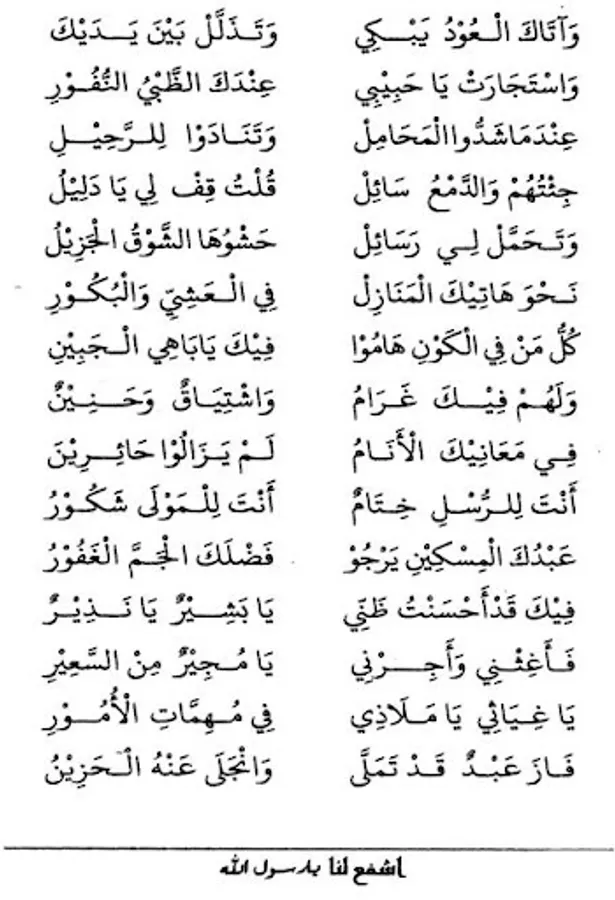 وَآتَاكَ الْعُوْدُ يَبْكِي وَتَذَلَّلْ بَيْنَ يَدَيْكَ
وَاسْتَجَارَتْ يَا حَبِيْبِي عِنْدَكَ الظَّبْيُ النُّفُوْرِ
عِنْدَمَا شَدُّوا الْمَحَامِلْ وَتَنَادَوْا لِلرَّحِيْلِ
جِئْتُهُمْ وَالدَّمْعُ سَائِلْ قُلْتُ قِفْ لِي يَا دَلِيْلُ
وَتَحَمَّلْ لِي رَسَائِلْ حَشْوُهَا الشَّوْقُ الْجَزِيْلُ
نَحْوَ هَاتِيْكَ الْمَنَازِلْ فِي الْعَشِيِّ وَالْبُكُوْرِ
كُلُّ مَنْ فِي الْكَوْنِ هَامُوْا فِيْكَ يَابَاهِي الْجَبِيْنِ
وَلَهُمْ فِيْكَ غَرَامُ وَاشْتِيَاقٌ وَحَنِيْنٌ
فِي مَعَانِيْكَ الْأَنَامُ لَمْ يَزَالُوْا حَائِرِيْنَ
أَنْتَ لِلرُّسْلِ خِتَامٌ أَنْتَ لِلْمَوْلَى شَكُوْرُ
عَبْدُكَ الْمِسْكِيْنِ يَرْجُوْ فَضْلَكَ الْجَمَّ الْغَفُوْرُ
فِيْكَ قَدْ أَحْسَنْتُ ظَنِّي يَا بَشِيْرٌ يَا نَذِيْرٌ
فَأَغِثْنِي وَأَجِرْنِي يَا مُجِيْرٌ مِنَ السَّعِيْرِ
يَا غِيَاثِي يَا مَلَاذِي فِي مُهِمَّاتِ الْأُمُوْرِ
فَازَ عَبْدٌ قَدْ تَمَلَّى وَانْجَلَى عَنْهُ الْحَزِيْنُ
اشفع لنا يارسول الله